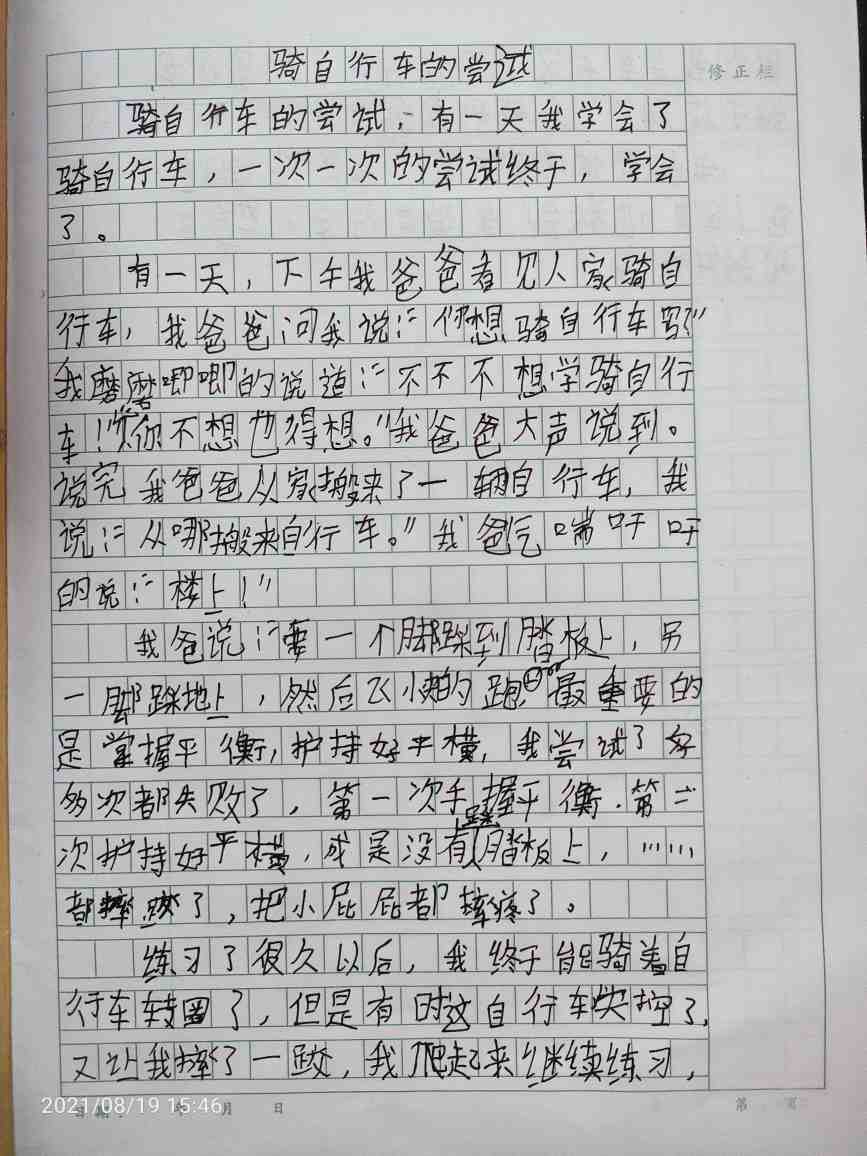 骑自行车的尝试
修正栏
骑自行车的尝试:有一天我学会了
骑自行车,一次一次的尝试终于,学会
了。
有一天,下午我爸爸看见人家骑自
行车,我爸爸问我说:“你想骑自行车吗?”
我磨磨唧唧的说道:“不不不想学骑自行
车!”“你不想也得想。”我爸爸大声说到。
说完我爸爸从家搬来了一辆自行车,我
说:“从哪搬来自行车。”我爸气喘吁吁
的说:“楼上!”
我爸说:“要一个脚踩到踏板上,另
一脚踩地上,然后飞小的跑,最重要的
是掌握平衡,护持好平横,我尝试了好
多次都失败了,第一次手握平衡.第二
次护持好平横,成是没有踩踏板上,……
都摔跤了,把小屁屁都摔疼了。
练习了很久以后,我终于能骑着自
行车转圈了,但是有时这自行车失控了,
又让我摔了一跤,我爬起来继续练习,
2021/08/19 15:46
年 月 日
第 页